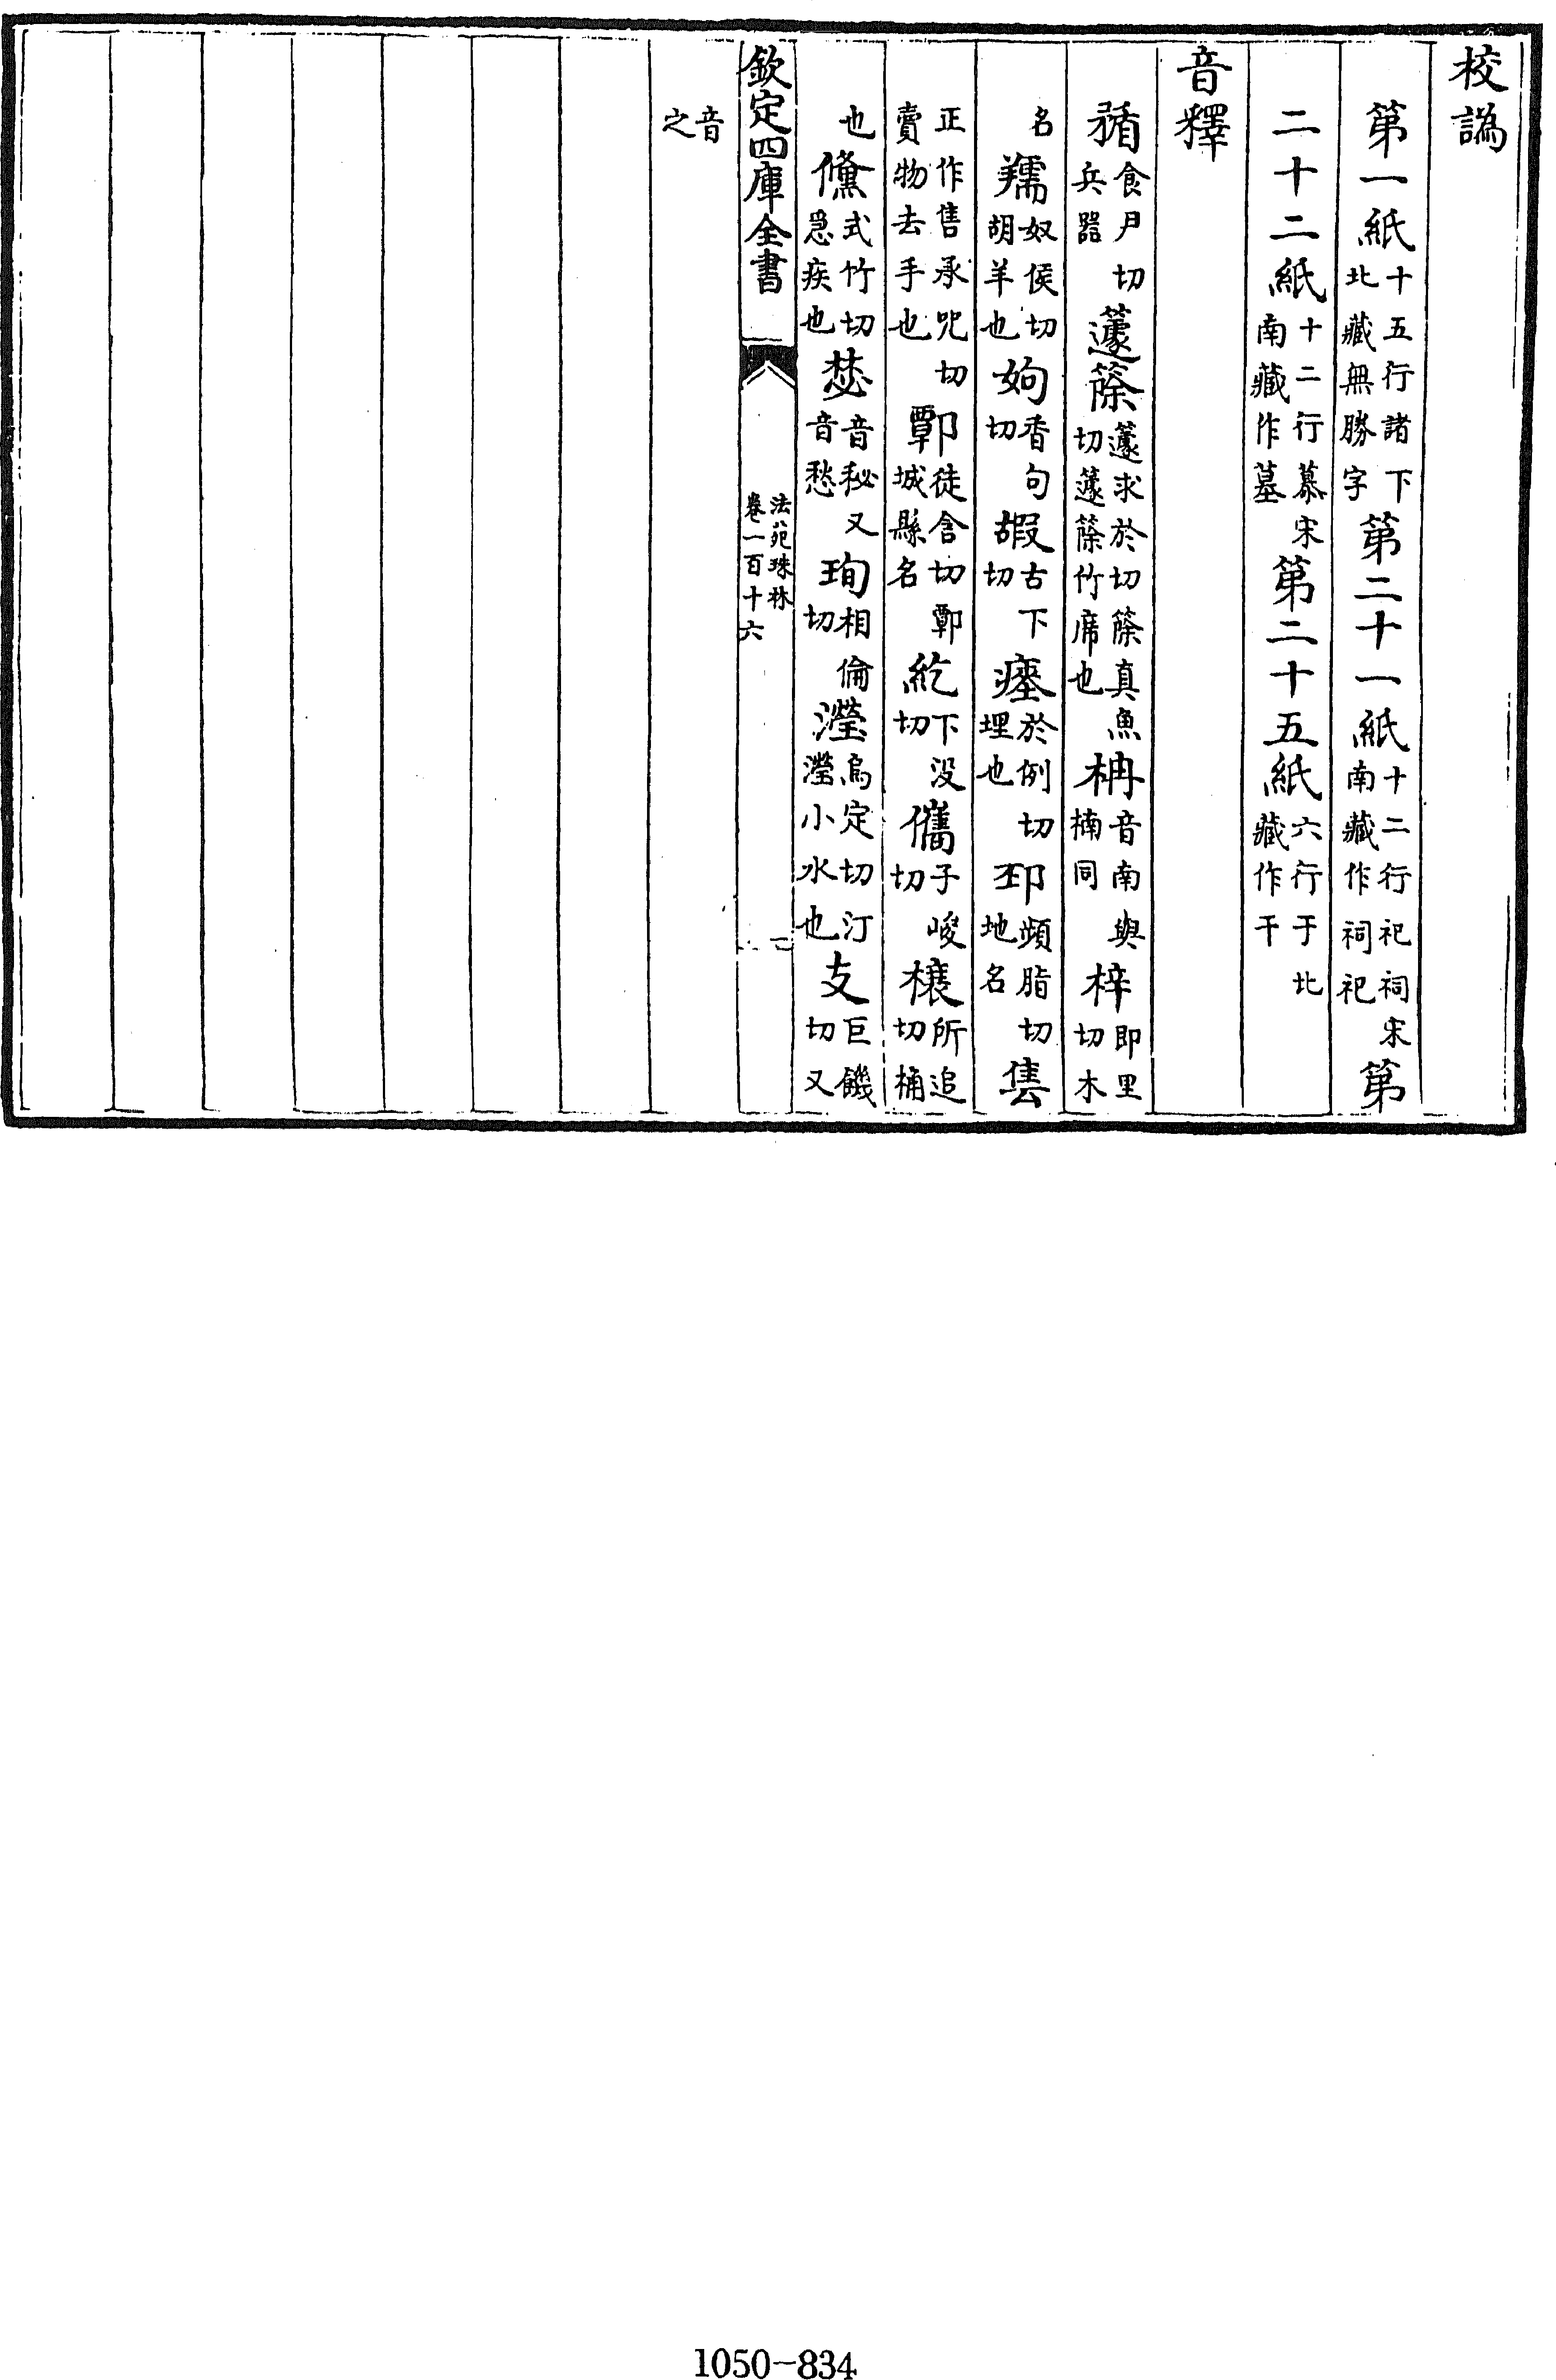 校譌
第一紙十五行諸下北藏無勝字第二十一紙十二行祀祠宋南藏作祠祀第
二十二紙十二行慕宋南藏作墓第二十五紙六行于北藏作干
音釋
楯食尹切兵器籧篨籧求於切篨真魚切籧篨竹席也柟音南與楠同梓即里切木
名羺奴侯切胡羊也姁香句切嘏古下切瘞於例切埋也邳頻脂切地名𨿽
正作售承呪切賣物去手也鄿徒含切鄿城縣名紇下没切儁子峻切榱所追切桶
也儵式竹切急疾也惄音秘又音愁珣相倫切瀅烏定切汀瀅小水也攴巨饑切又
欽定四庫全書
法苑珠林
卷一百十六
音之
1050-834